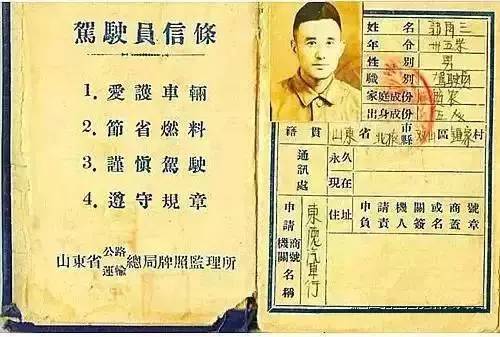 駕駛員信條
1. 愛護車輛
2. 節省燃料
3. 謹慎駕駛
4. 遵守規章
山東省公路運輸總局牌照監理所
姓名
年份 卅五岁
性別 男
職別 駕駛員
家庭成份
出身成份
籍貫 山東省 市縣 區 村
通訊處 永久
現在
申請機關商號名稱 東德汽車行
住址
申請機關或商號
負責人簽名蓋章